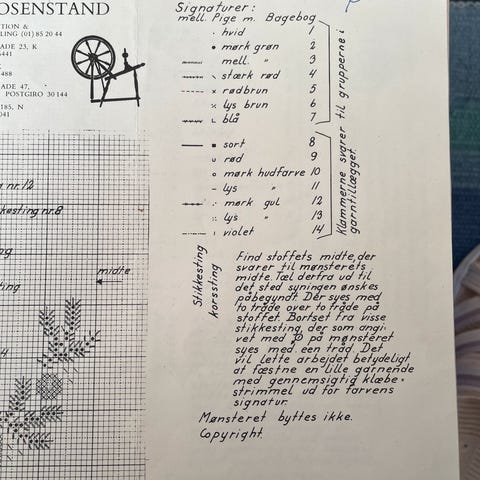 OSENSTAND
TION &
LING (01) 85 20 44
ADE 23, K
6441
488
ADE 47,
POSTGIRO 30 144
185, N
041
nr. 12
kesting nr. 8
ting
midte
4
Signaturer:
mell. Pige m. Bagebog
hvid 1
mørk grøn 2
mell. " 3
stærk rød 4
rødbrun 5
lys brun 6
blå 7
sort 8
rød 9
mørk hudfarve 10
lys " 11
mørk gul 12
lys " 13
violet 14
Klammerne svarer til grupperne i
garntillægget.
Stikkesting
korssting
Find stoffets midte, der
svarer til mønsterets
midte. Tæl derfra ud til
det sted syningen ønskes
påbegyndt. Der syes med
to tråde over to tråde på
stoffet. Bortset fra visse
stikkesting, der som angi-
vet med på mønsteret
syes med een tråd. Det
vil lette arbejdet betydeligt,
at fæstne en lille garnende
med gennemsigtig klæbe-
strimmel ud for farvens
signatur.
Mønsteret byttes ikke.
Copyright.